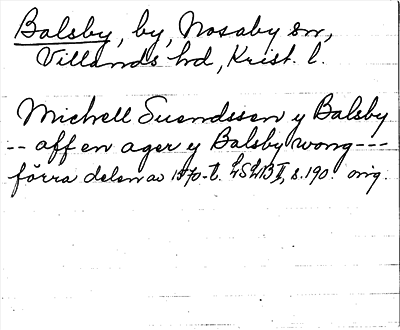 Balsby, by, Nosaby sn,
Villands hd, Krist. l.
Michell Suendssen y Balsby
-- aff en ager y Balsby wong ---
förra delen av 1570-t. LSLB II, s. 190. orig.